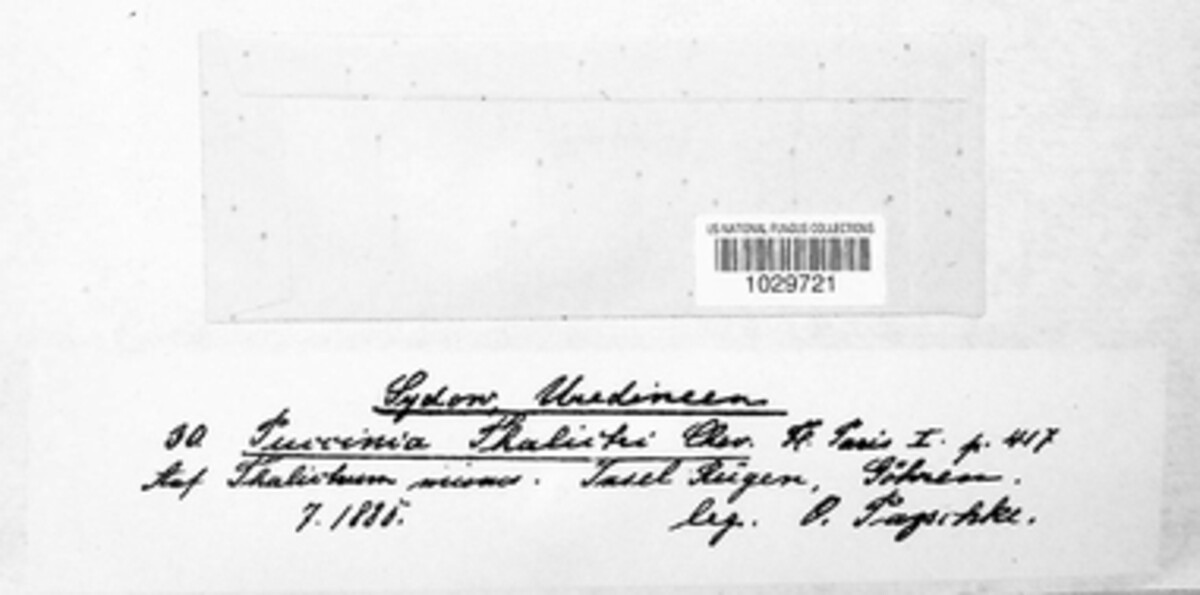 US NATIONAL FUNGUS COLLECTIONS
1029721
Sydow, Uredineen
30 Puccinia Thalictri Chev. Fl. Paris I. p. 417
Auf Thalictrum minus. Insel Rügen, Göhren.
7. 1885. leg. O. Pazschke.